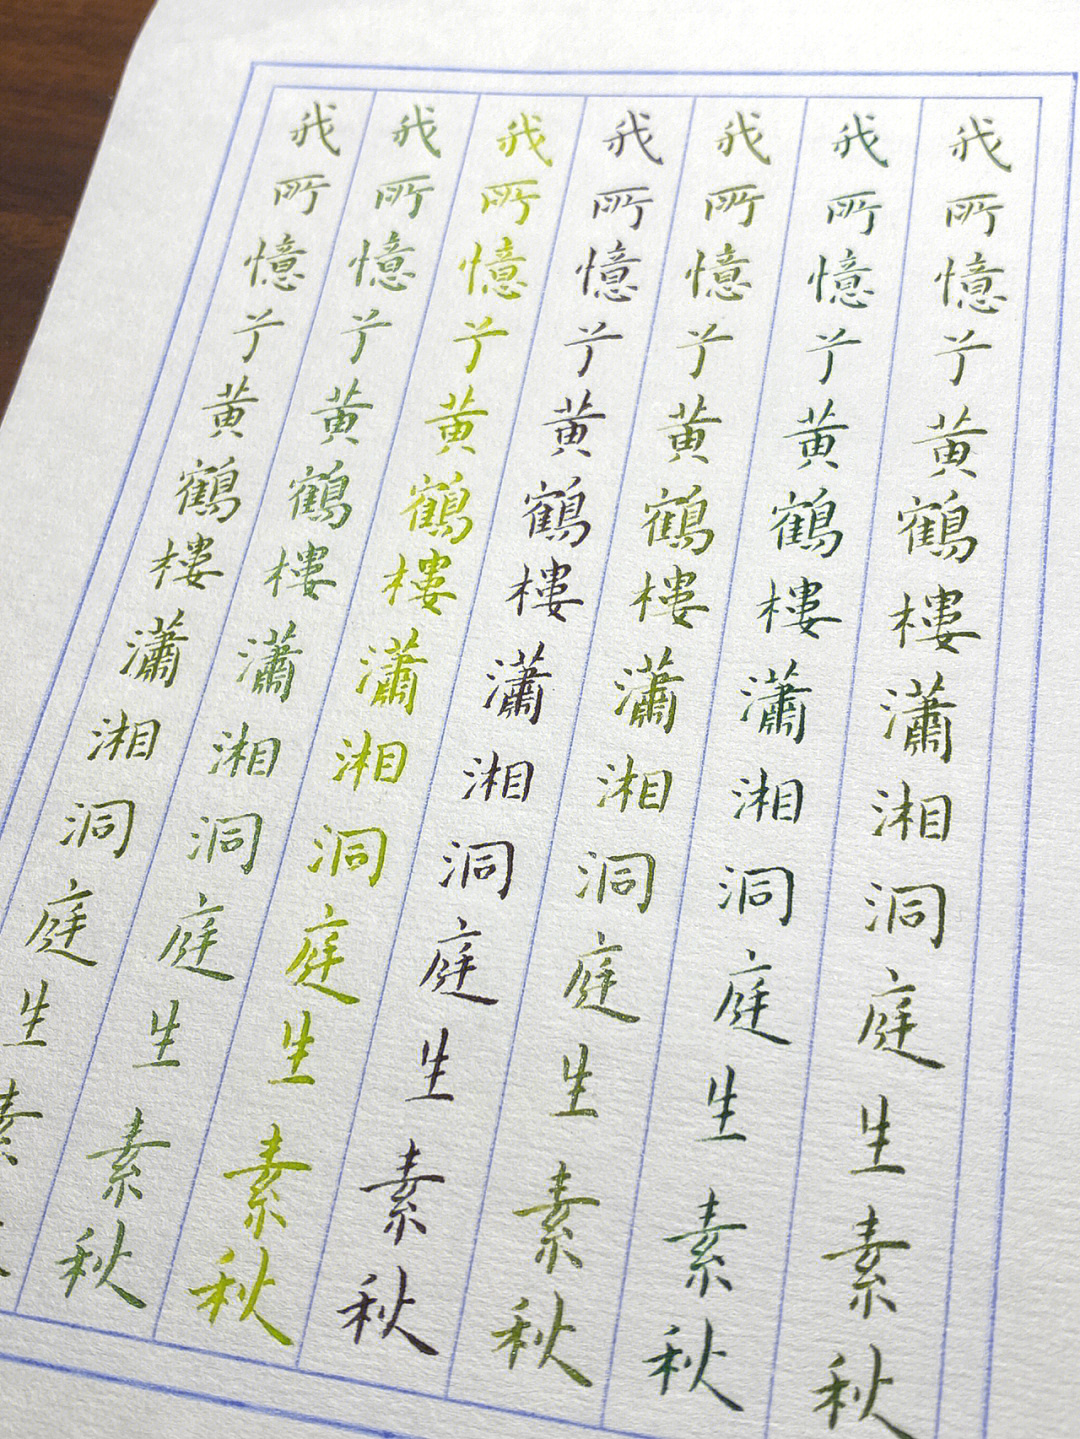 我所憶兮黄鶴樓瀟湘洞庭生素秋
我所憶兮黄鶴樓瀟湘洞庭生素秋
我所憶兮黄鶴樓瀟湘洞庭生素秋
我所憶兮黄鶴樓瀟湘洞庭生素秋
我所憶兮黄鶴樓瀟湘洞庭生素秋
我所憶兮黄鶴樓瀟湘洞庭生素秋
我所憶兮黄鶴樓瀟湘洞庭生素